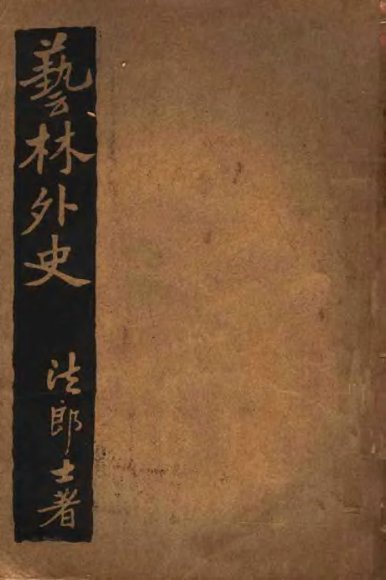 藝林外史
法郎士著